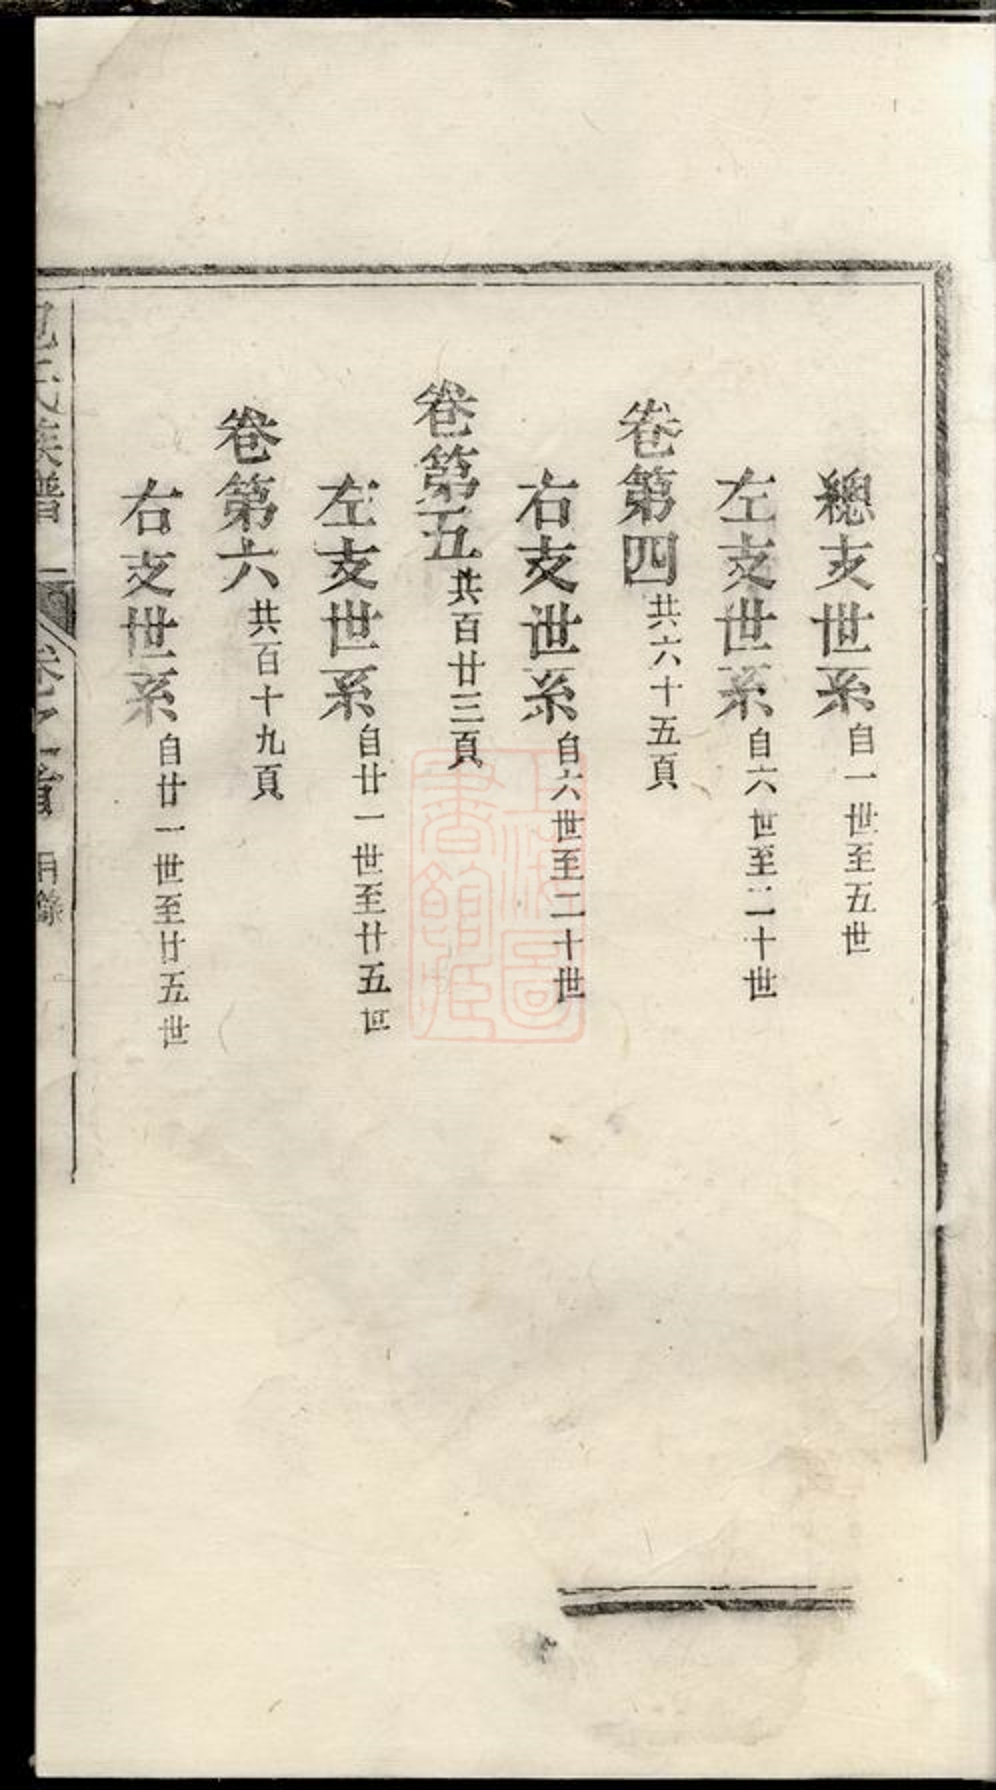 總支世系自一世至五世
左支世系自六世至二十世
卷第四共六十五頁
右支世系自六世至二十世
卷第五共百廿三頁
左支世系自廿一世至廿五世
卷第六共百十九頁
右支世系自廿一世至廿五世
氏族譜 卷之首 目錄